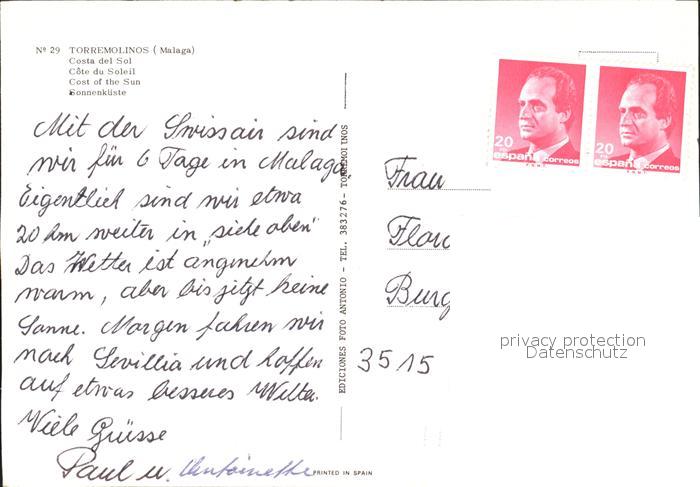 Nº 29 TORREMOLINOS (Malaga)
Costa del Sol
Côte du Soleil
Cost of the Sun
Sonnenküste
Mit der Swissair sind
wir für 6 Tage in Malaga
Eigentlich sind wir etwa
20 km weiter in „siehe oben"
Das Wetter ist angenehm
warm, aber bis jetzt keine
Sonne. Morgen fahren wir
nach Sevillia und hoffen
auf etwas besseres Wetter.
Viele Grüsse
Paul u. Antoinette
PRINTED IN SPAIN
EDICIONES FOTO ANTONIO - TEL. 383276 - TORREMOLINOS
20
españa correos
20
españa correos
Frau
Flor
Burg
3515
privacy protection
Datenschutz